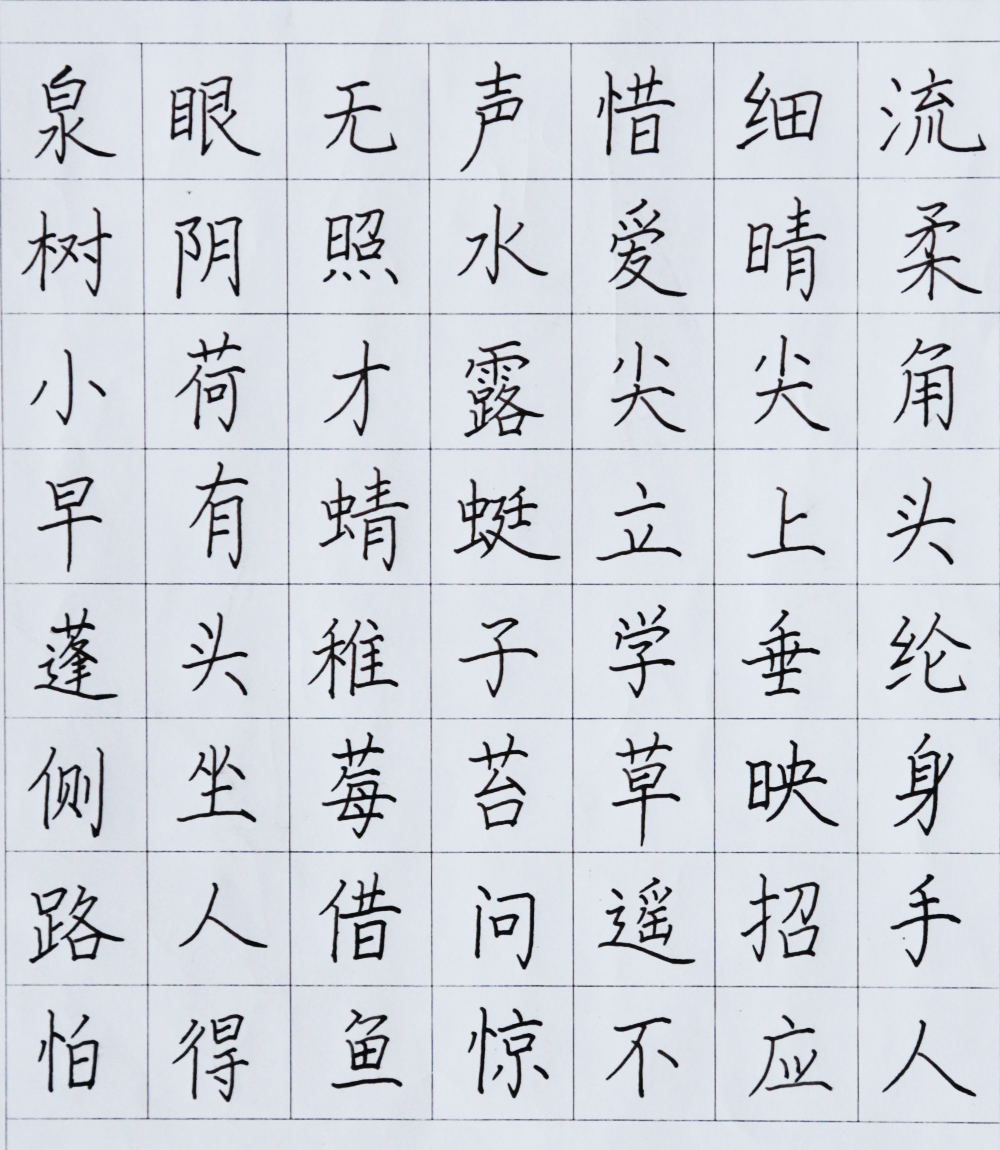 泉眼无声惜细流
树阴照水爱晴柔
小荷才露尖尖角
早有蜻蜓立上头
蓬头稚子学垂纶
侧坐莓苔草映身
路人借问遥招手
怕得鱼惊不应人